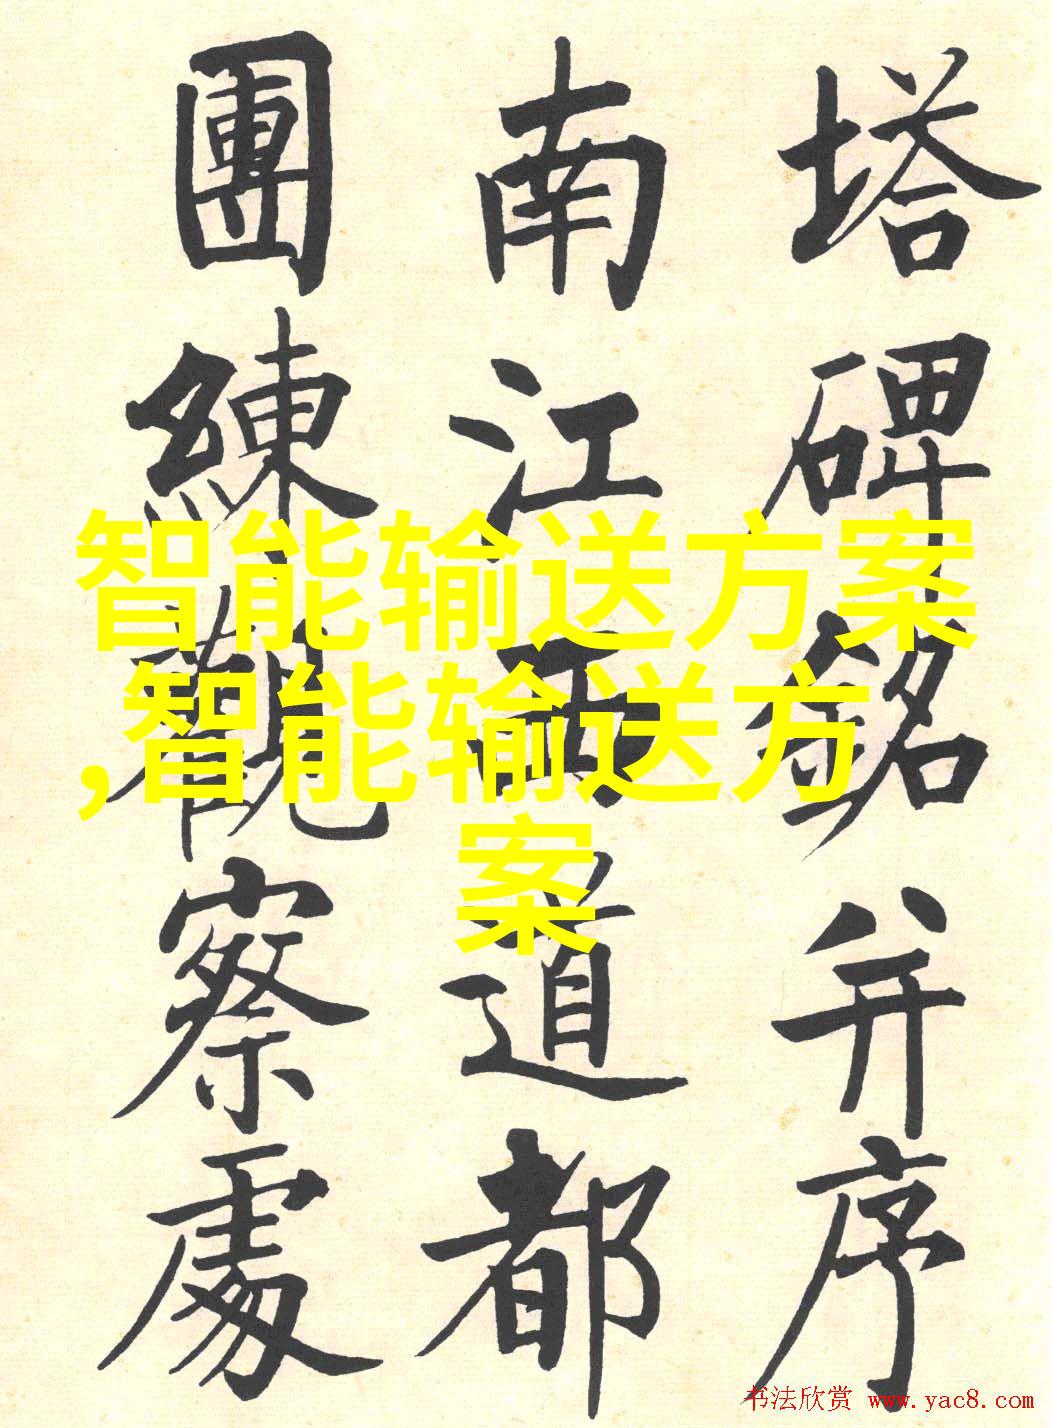 塔碑銘并序
南江西道都
團練觀察處
智能输送方案
,智能输送方
案
书法欣赏 www.yac8.com